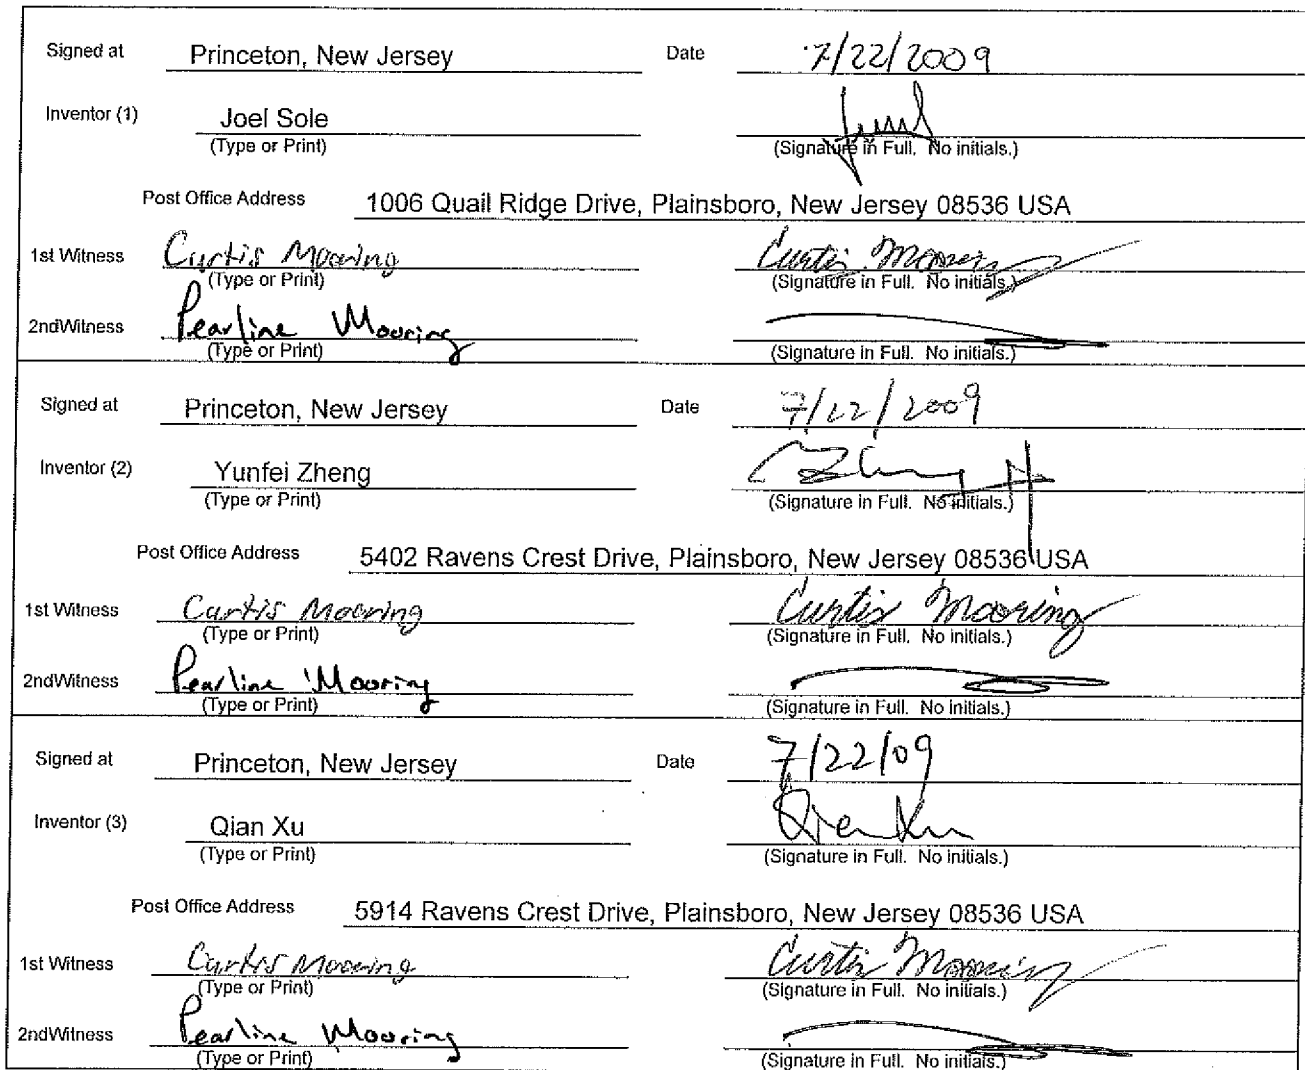 Signed at Princeton, New Jersey Date 7/22/2009
Inventor (1) Joel Sole
(Type or Print) (Signature in Full. No initials.)
Post Office Address 1006 Quail Ridge Drive, Plainsboro, New Jersey 08536 USA
1st Witness Curtis Mooring Curtis Mooring
(Type or Print) (Signature in Full. No initials.)
2ndWitness Pearline Mooring
(Type or Print) (Signature in Full. No initials.)
Signed at Princeton, New Jersey Date 7/22/2009
Inventor (2) Yunfei Zheng
(Type or Print) (Signature in Full. No initials.)
Post Office Address 5402 Ravens Crest Drive, Plainsboro, New Jersey 08536 USA
1st Witness Curtis Mooring Curtis Mooring
(Type or Print) (Signature in Full. No initials.)
2ndWitness Pearline Mooring
(Type or Print) (Signature in Full. No initials.)
Signed at Princeton, New Jersey Date 7/22/09
Inventor (3) Qian Xu Qian Xu
(Type or Print) (Signature in Full. No initials.)
Post Office Address 5914 Ravens Crest Drive, Plainsboro, New Jersey 08536 USA
1st Witness Curtis Mooring Curtis Mooring
(Type or Print) (Signature in Full. No initials.)
2ndWitness Pearline Mooring
(Type or Print) (Signature in Full. No initials.)